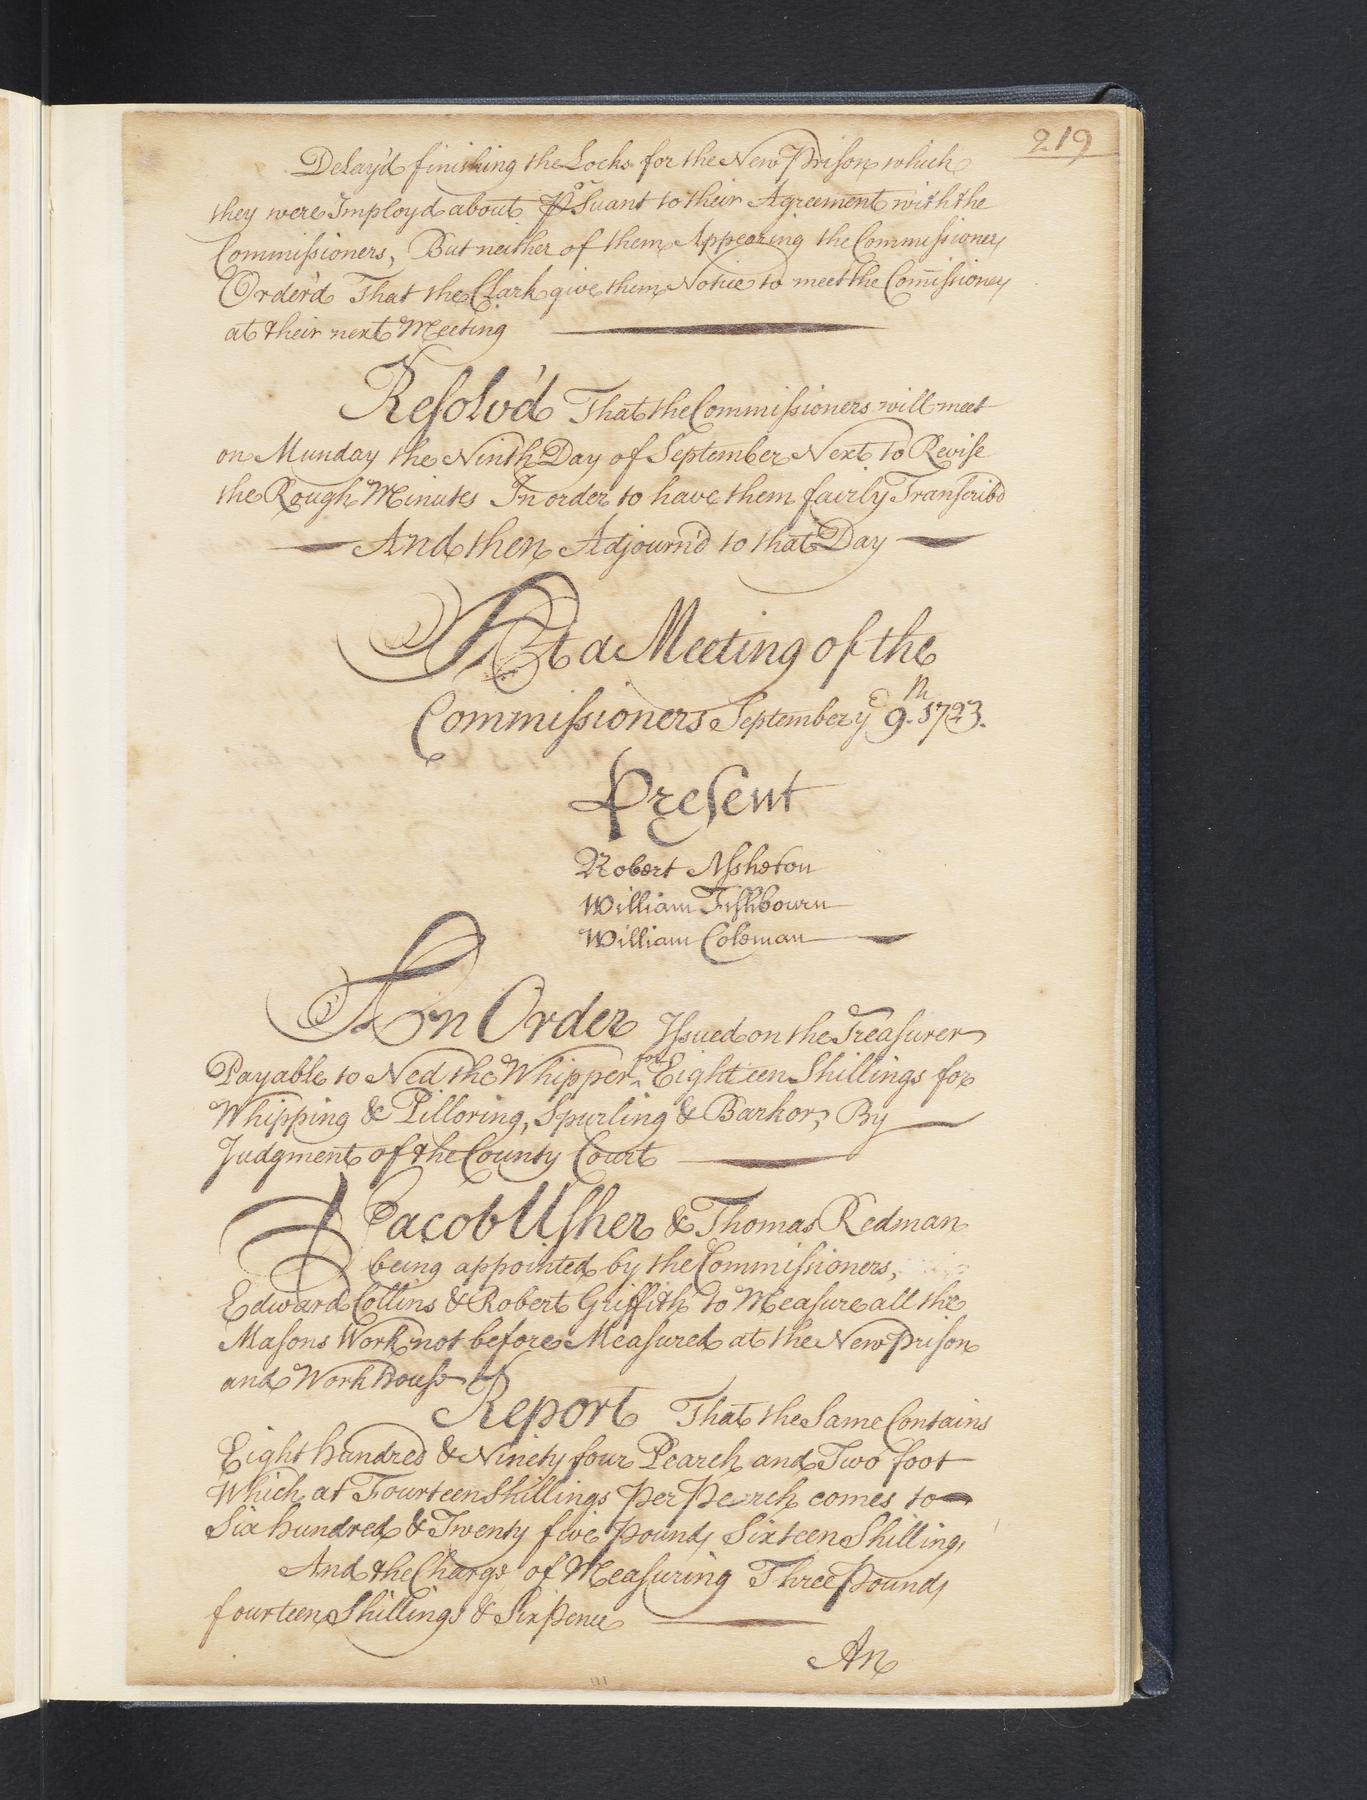 219
Delay'd finishing the Locks for the New Prison which
they were Imployd about Psuant to their Agreement with the
Commissioners, But neither of them Appearing the Commissioners
Order'd That the Clark give them Notice to meet the Comissioners
at their next Meeting
Resolv'd That the Commissioners will meet
on Munday the Ninth Day of September Next to Revise
the Rough Minutes In order to have them fairly Transcrib'd
And then Adjourn'd to that Day
At a Meeting of the
Commissioners September ye 9th 1723.
Present
Robert Assheton
William Fishbourn
William Coleman
An Order Issued on the Treasurer
Payable to Ned the Whipper for Eighteen Shillings for
Whipping & Pilloring, Spurling & Barkor, By
Judgment of the County Court
Jacob Usher & Thomas Redman
being appointed by the Commissioners,
Edward Collins & Robert Griffith to Measure all the
Masons Work not before Measured at the New Prison
and Work house
Report That the Same Contains
Eight hundred & Ninety four Pearch and Two foot
Which at Fourteen Shillings Per Perch comes to
Six hundred & Twenty five Pounds Sixteen Shillings
And the Charge of Measuring Three Pounds
fourteen Shillings & Six Pence
An